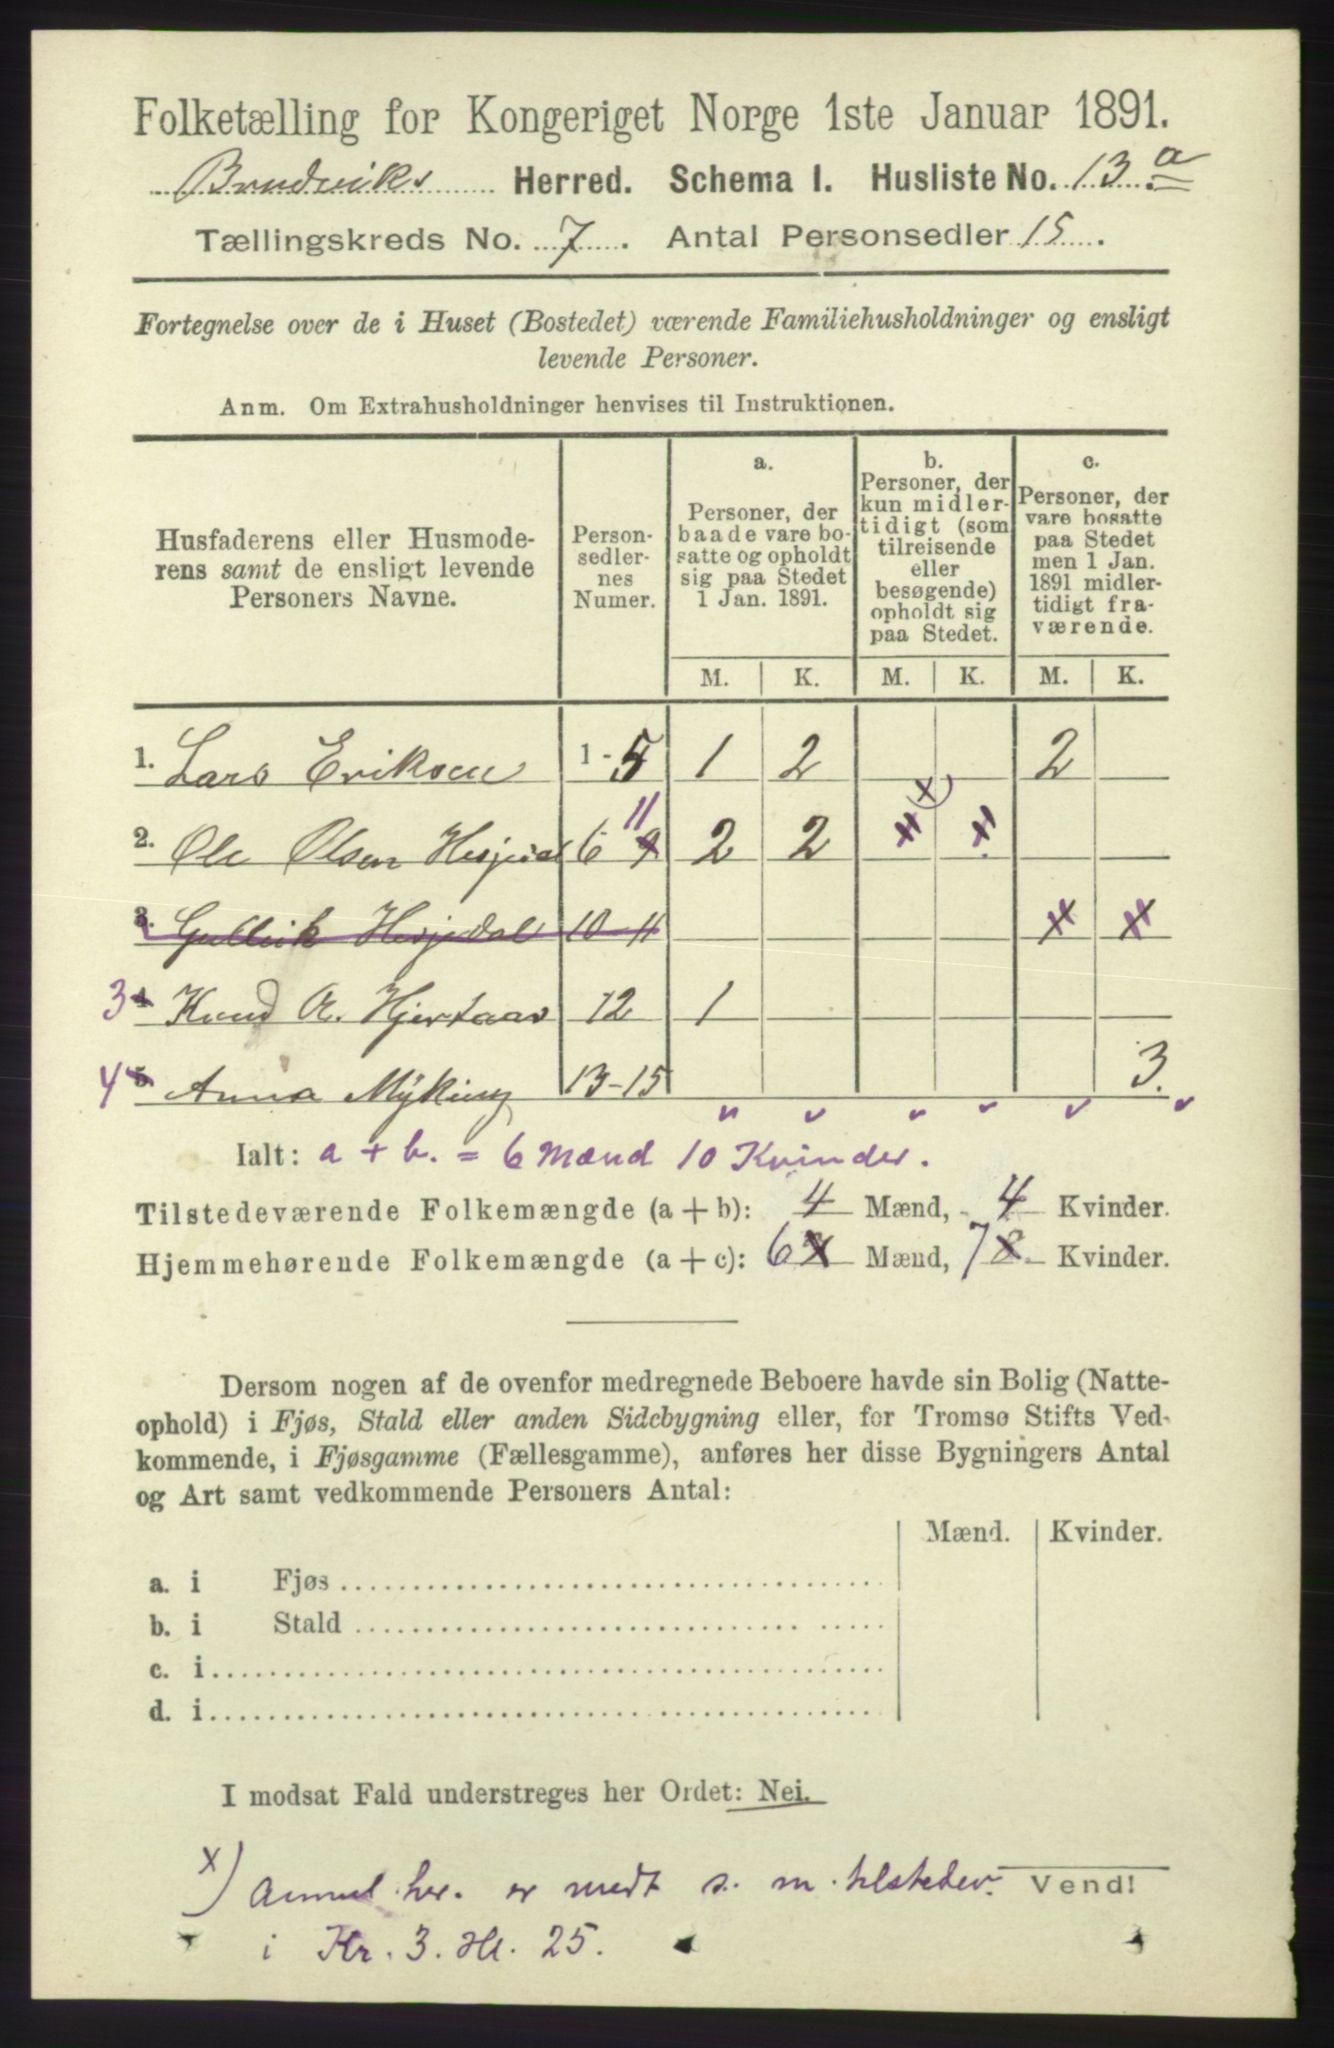 Folketælling for Kongeriget Norge 1ste Januar 1891.
Brudviks Herred. Schema I. Husliste No. 13 a.
Tællingskreds No. 7. Antal Personsedler 15.
Fortegnelse over de i Huset (Bostedet) værende Familiehusholdninger og ensligt
levende Personer.
Anm. Om Extrahusholdninger henvises til Instruktionen.
Husfaderens eller Husmode-
rens samt de ensligt levende
Personers Navne.
Person-
sedler-
nes
Numer.
a.
Personer, der
baade vare bo-
satte og opholdt
sig paa Stedet
1 Jan. 1891.
b.
Personer, der
kun midler-
tidigt (som
tilreisende
eller
besøgende)
opholdt sig
paa Stedet.
c.
Personer, der
vare bosatte
paa Stedet
men 1 Jan.
1891 midler-
tidigt fra-
værende.
M. K. M. K. M. K.
1. Lars Eriksen 1-5 1 2 2
2. Ole Olsen Hesjedal 6 11 2 2 x)
3. Gulleik Hesjedal 10-11
3 4 Knud A. Hjertaas 12 1
4 5 Anna Myking 13-15 3.
Ialt: a + b. = 6 Mænd 10 Kvinder.
Tilstedeværende Folkemængde (a + b): 4 Mænd, 4 Kvinder.
Hjemmehørende Folkemængde (a + c): 6 Mænd, 7 8 Kvinder.
Dersom nogen af de ovenfor medregnede Beboere havde sin Bolig (Natte-
ophold) i Fjøs, Stald eller anden Sidebygning eller, for Tromsø Stifts Ved-
kommende, i Fjøsgamme (Fællesgamme), anføres her disse Bygningers Antal
og Art samt vedkommende Personers Antal:
Mænd. Kvinder.
a. i Fjøs
b. i Stald
c. i
d. i
I modsat Fald understreges her Ordet: Nei.
x) Anmel. her. er medt s. m. tilstedev. Vend!
i Kr. 3. Hl. 25.